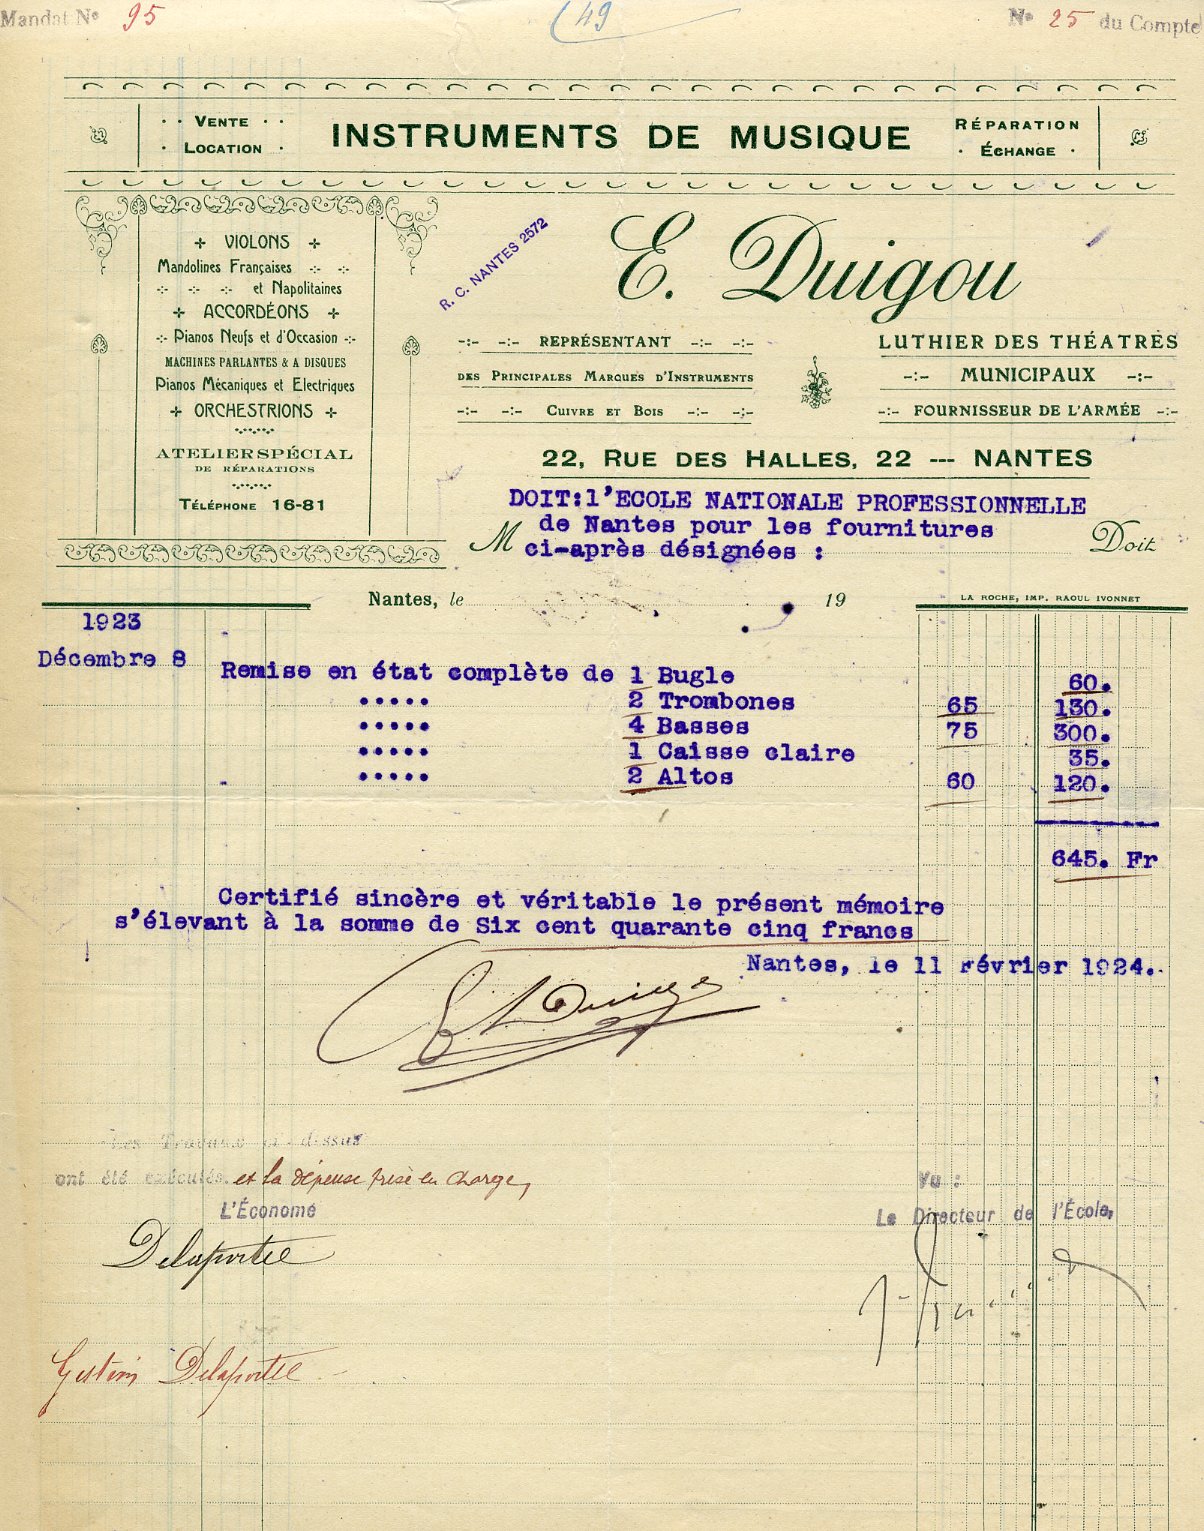 Mandat Nº 95
49
Nº 25 du Compte
VENTE
LOCATION
INSTRUMENTS DE MUSIQUE
RÉPARATION
ÉCHANGE
VIOLONS
Mandolines Françaises
et Napolitaines
ACCORDÉONS
Pianos Neufs et d'Occasion
MACHINES PARLANTES & A DISQUES
Pianos Mécaniques et Electriques
ORCHESTRIONS
ATELIER SPÉCIAL
DE RÉPARATIONS
TÉLÉPHONE 16-81
R. C. NANTES 2572
E. Duigou
REPRÉSENTANT
DES PRINCIPALES MARQUES D'INSTRUMENTS
CUIVRE ET BOIS
LUTHIER DES THÉATRES
MUNICIPAUX
FOURNISSEUR DE L'ARMÉE
22, RUE DES HALLES, 22 --- NANTES
DOIT:l'ECOLE NATIONALE PROFESSIONNELLE
de Nantes pour les fournitures
M ci-après désignées : Doit
Nantes, le 19
LA ROCHE, IMP. RAOUL IVONNET
1923
Décembre 8
Remise en état complète de 1 Bugle 60.
..... 2 Trombones 65 130.
..... 4 Basses 75 300.
..... 1 Caisse claire 35.
..... 2 Altos 60 120.
645. Fr
Certifié sincère et véritable le présent mémoire
s'élevant à la somme de Six cent quarante cinq francs
Nantes, le 11 Février 1924.
E Duigou
Les Travaux ci-dessus
ont été exécutés et la dépense prise en charge,
L'Économe
Delaportee
Vu :
Le Directeur de l'École,
Gestion Delaportee